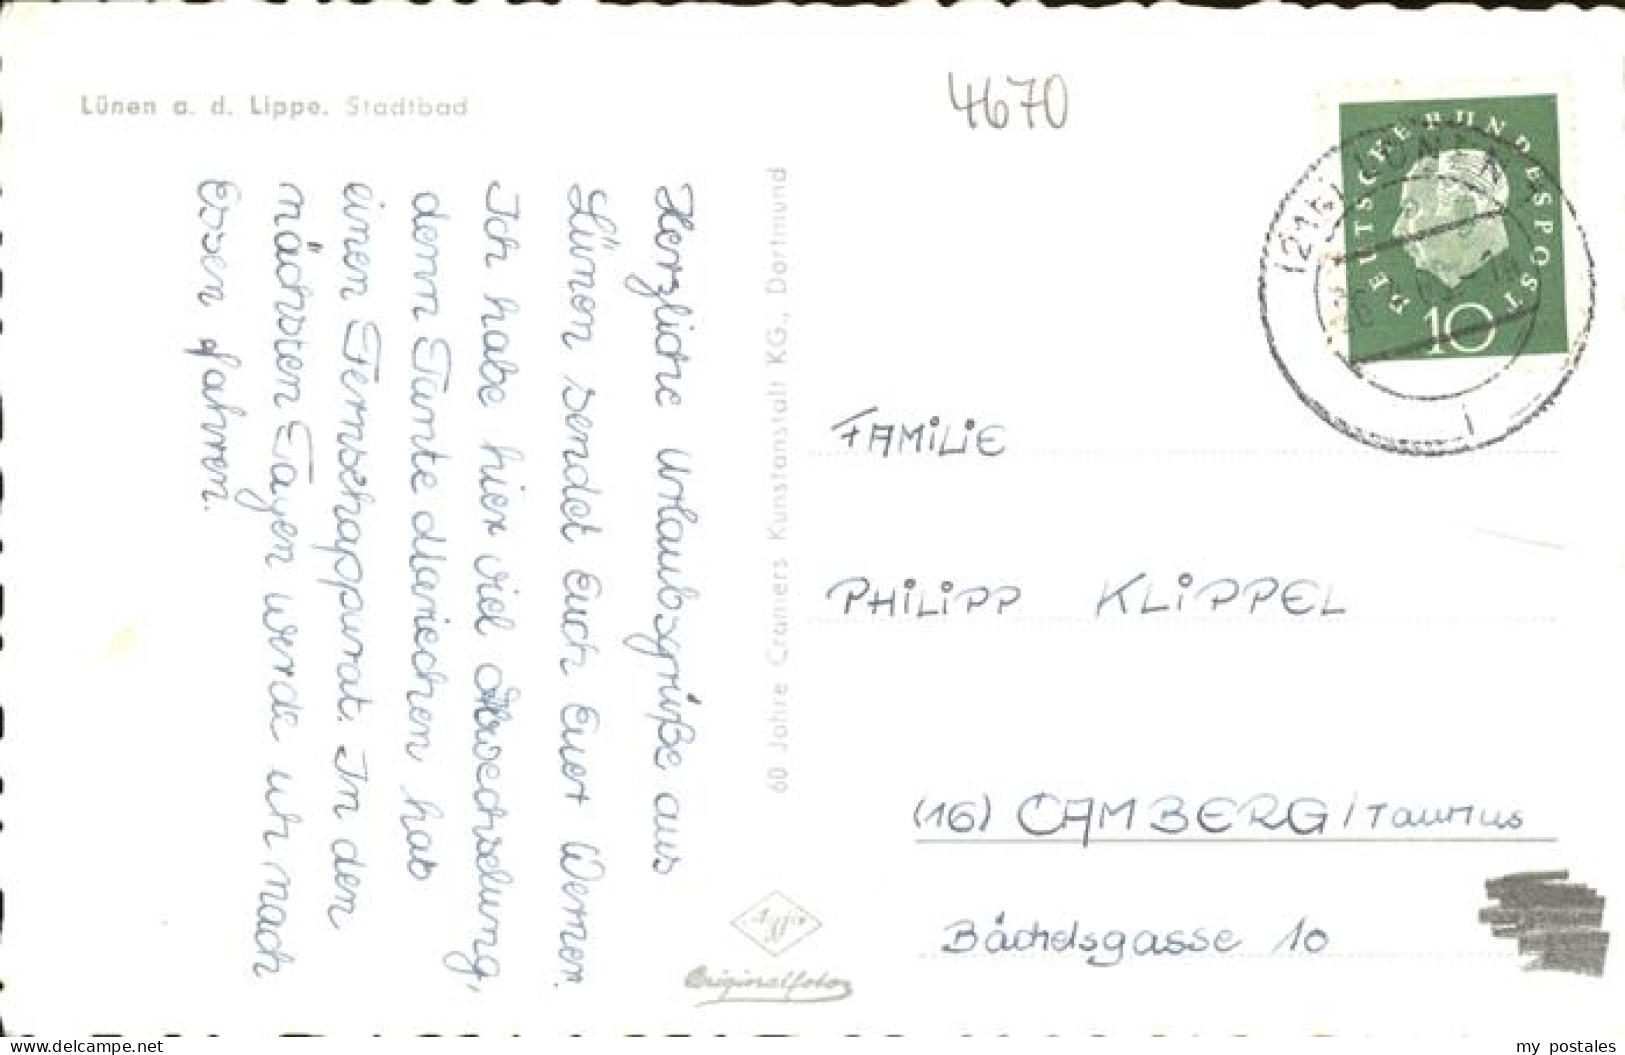 Lünen a. d. Lippe. Stadtbad
4670
DEUTSCHE BUNDESPOST
10
(21b) LÜNEN
Herzliche Urlaubsgrüße aus
Lünen sendet Euch Euer Werner.
Ich habe hier viel Abwechselung,
denn Tante Mariechen hat
einen Fernsehapparat. In den
nächsten Tagen werde ich nach
Essen fahren.
60 Jahre Cramers Kunstanstalt KG., Dortmund
Agfa
Originalfoto
FAMILIE
PHILIPP KLIPPEL
(16) CAMBERG/Taunus
Bächelsgasse 10
www.oldthing.de
my postales